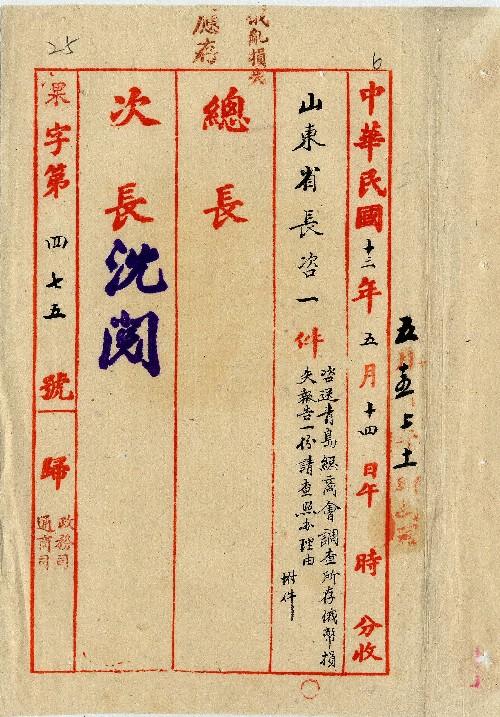 俄亂損失
應存
25
6
中華民國十三年五月十四日午 時 分收
山東省長咨一件
咨送青島總商會調查所存俄幣損
失報告一份請查照办理由
附件
總長
次長
沈閱
杲字第四七五號歸
政務司
通商司